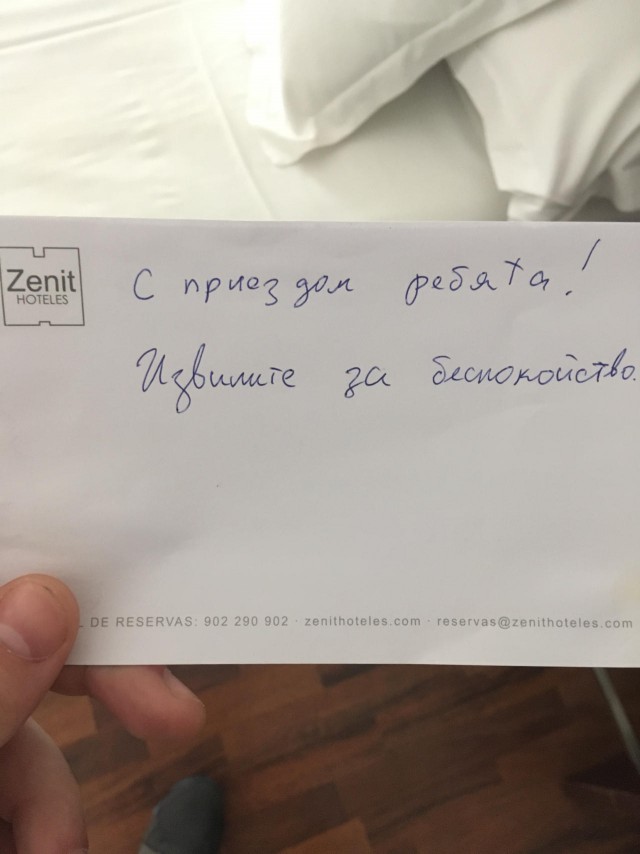 Zenit
HOTELES
С приездом ребята!
Извините за беспокойство.
L DE RESERVAS: 902 290 902 · zenithoteles.com · reservas@zenithoteles.com